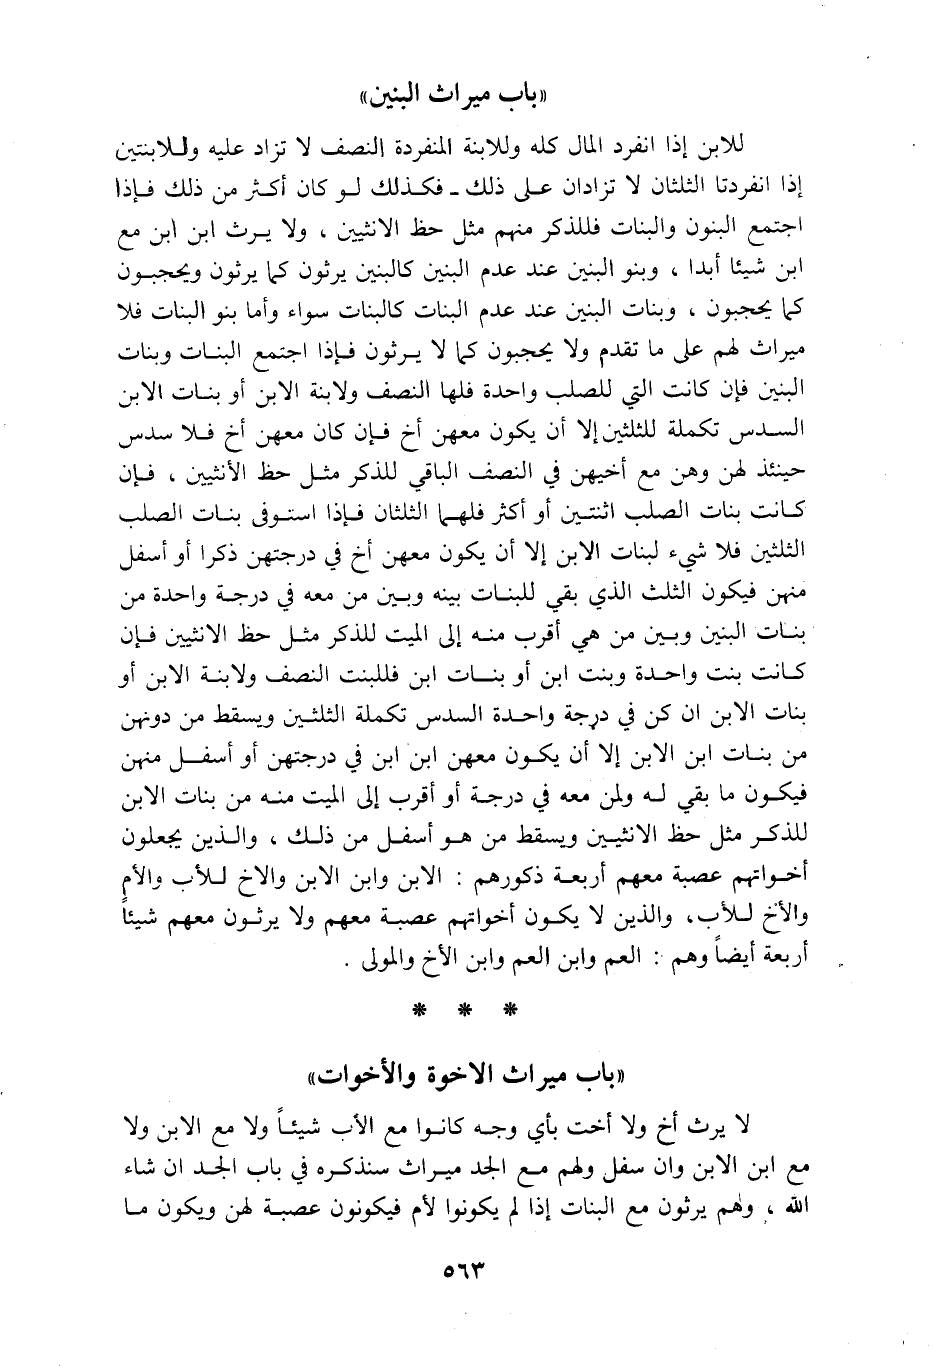 «باب ميراث البنين»
للابن إذا انفرد المال كله وللابنة المنفردة النصف لا تزاد عليه وللابنتين
إذا انفردتا الثلثان لا تزادان على ذلك ـ فكذلك لو كان أكثر من ذلك فإذا
اجتمع البنون والبنات فللذكر منهم مثل حظ الانثيين ، ولا يرث ابن ابن مع
ابن شيئا أبدا ، وبنو البنين عند عدم البنين كالبنين يرثون كما يرثون ويحجبون
كما يحجبون ، وبنات البنين عند عدم البنات كالبنات سواء وأما بنو البنات فلا
ميراث لهم على ما تقدم ولا يحجبون كما لا يرثون فإذا اجتمع البنات وبنات
البنين فإن كانت التي للصلب واحدة فلها النصف ولابنة الابن أو بنات الابن
السدس تكملة للثلثين إلا أن يكون معهن أخ فإن كان معهن أخ فلا سدس
حينئذ لهن وهن مع أخيهن في النصف الباقي للذكر مثل حظ الأنثيين ، فإن
كانت بنات الصلب اثنتين أو أكثر فلهما الثلثان فإذا استوفى بنات الصلب
الثلثين فلا شيء لبنات الابن إلا أن يكون معهن أخ في درجتهن ذكرا أو أسفل
منهن فيكون الثلث الذي بقي للبنات بينه وبين من معه في درجة واحدة من
بنات البنين وبين من هي أقرب منه إلى الميت للذكر مثل حظ الانثيين فإن
كانت بنت واحدة وبنت ابن أو بنات ابن فللبنت النصف ولابنة الابن أو
بنات الابن ان كن في درجة واحدة السدس تكملة الثلثين ويسقط من دونهن
من بنات ابن الابن إلا أن يكون معهن ابن ابن في درجتهن أو أسفل منهن
فيكون ما بقي له ولمن معه في درجة أو أقرب إلى الميت منه من بنات الابن
للذكر مثل حظ الانثيين ويسقط من هو أسفل من ذلك ، والذين يجعلون
أخواتهم عصبة معهم أربعة ذكورهم : الابن وابن الابن والاخ للأب والأم
والأخ للأب، والذين لا يكون أخواتهم عصبة معهم ولا يرثون معهم شيئاً
أربعة أيضاً وهم : العم وابن العم وابن الأخ والمولى .
* * *
«باب ميراث الاخوة والأخوات»
لا يرث أخ ولا أخت بأي وجه كانوا مع الأب شيئاً ولا مع الابن ولا
مع ابن الابن وان سفل ولهم مع الجد ميراث سنذكره في باب الجد ان شاء
الله ، وهم يرثون مع البنات إذا لم يكونوا لأم فيكونون عصبة لهن ويكون ما
٥٦٣